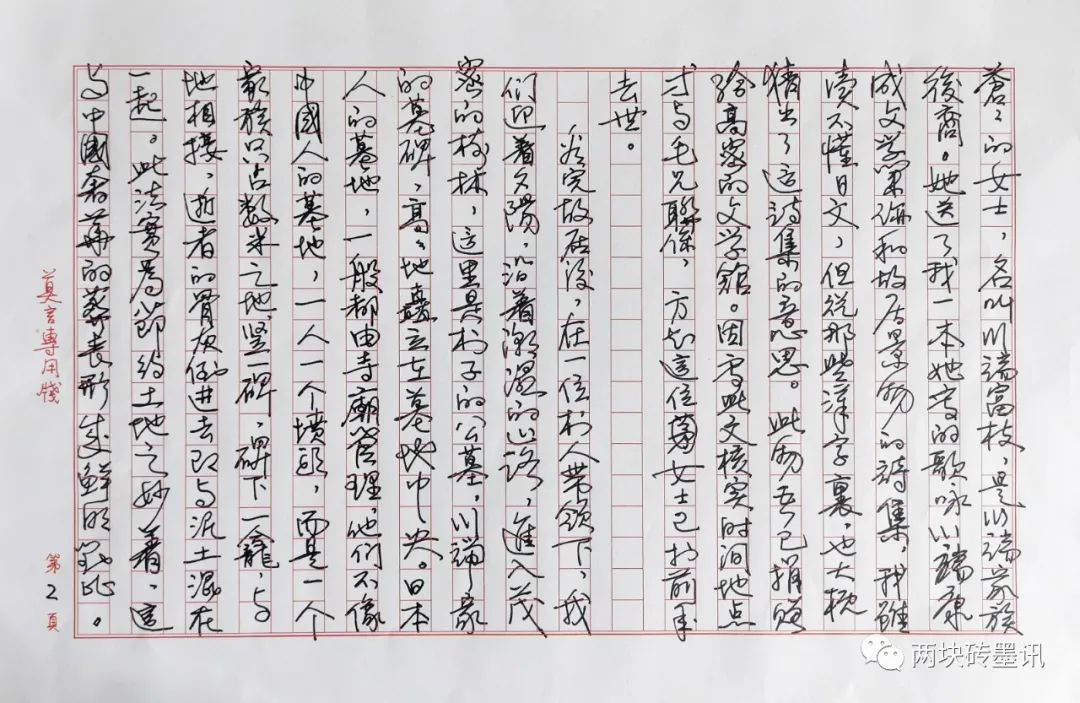 蒼々的女士，名叫川端富枝，是川端家族
後裔。她送了我一本她寫的歌咏川端康
成文学業绩和故居景物的詩集，我雖
读不懂日文，但從那些漢字裏，也大概
猜出了這詩集的意思。此物吾已捐贈
给高密的文学舘。因寫此文核实时间地点
才与毛兄聯係，方知這位富女士已於前年
去世。
看完故居後，在一位村人带领下，我
们迎着夕陽，沿着潮濕的山路，進入茂
密的树林，這里是村子的公墓，川端家
的墓碑，高々地矗立在墓地中央。日本
人的墓地，一般都由寺廟管理，他们不像
中國人的墓地，一人一个墳頭，而是一个
家族只占数米之地，竖一碑，碑下一龕，与
地相接，逝者的骨灰倒进去即与泥土混在
一起。此法實為節约土地之妙着，這
与中國奢華的葬喪形成鲜明對比。
莫言專用牋
第2頁
两块砖墨讯